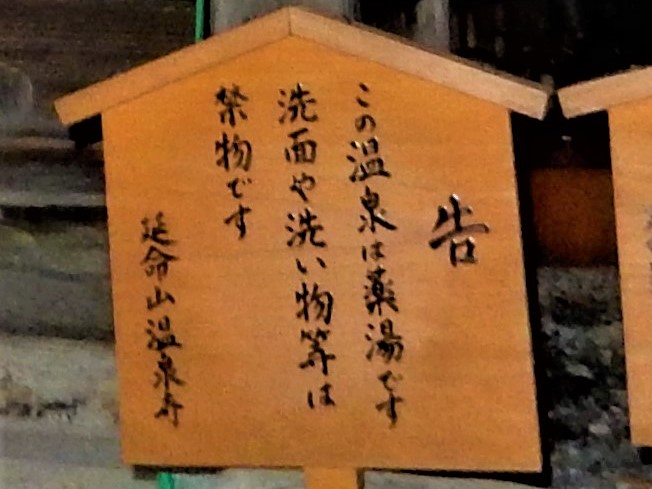 告
この温泉は薬湯です
洗面や洗い物等は
禁物です
延命山温泉寺